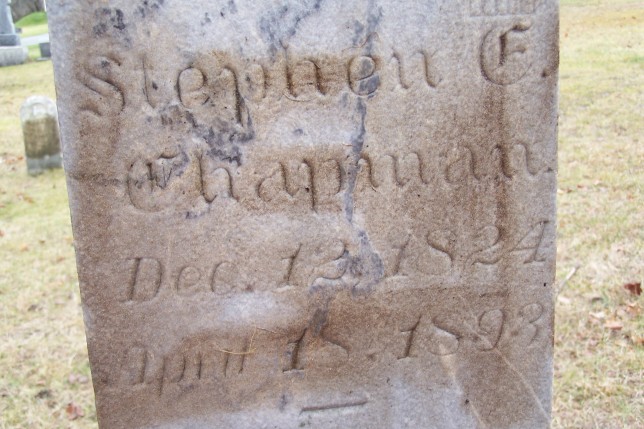 Stephen E.
Chapman.
Dec. 12, 1824
April 18, 1893